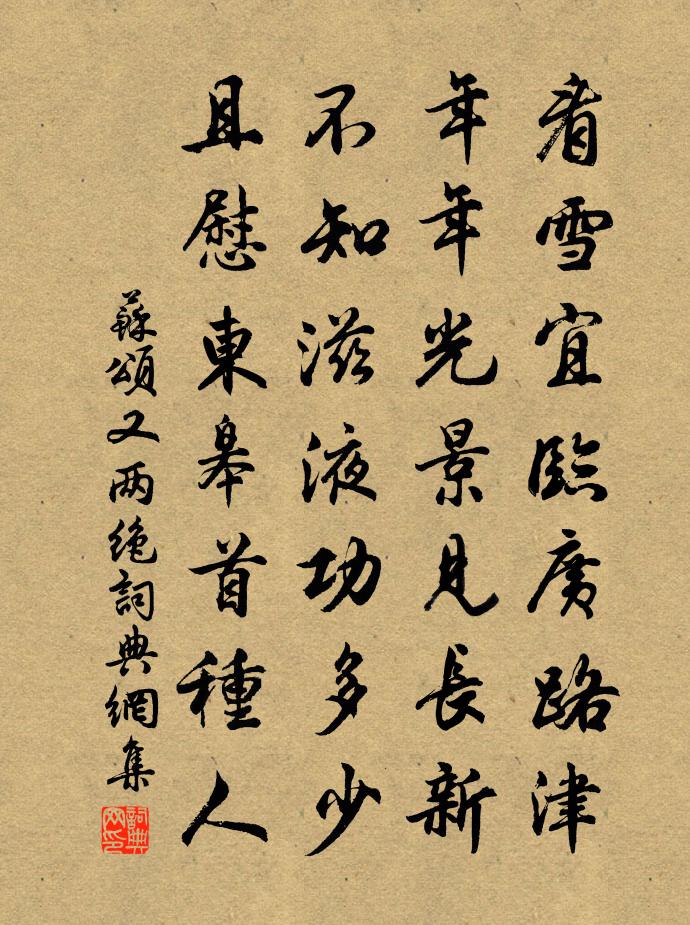 看雪宜臨廣路津
年年光景見長新
不知滋液功多少
且慰東皋首種人
蘇頌又两绝詞典網集
詞典網印